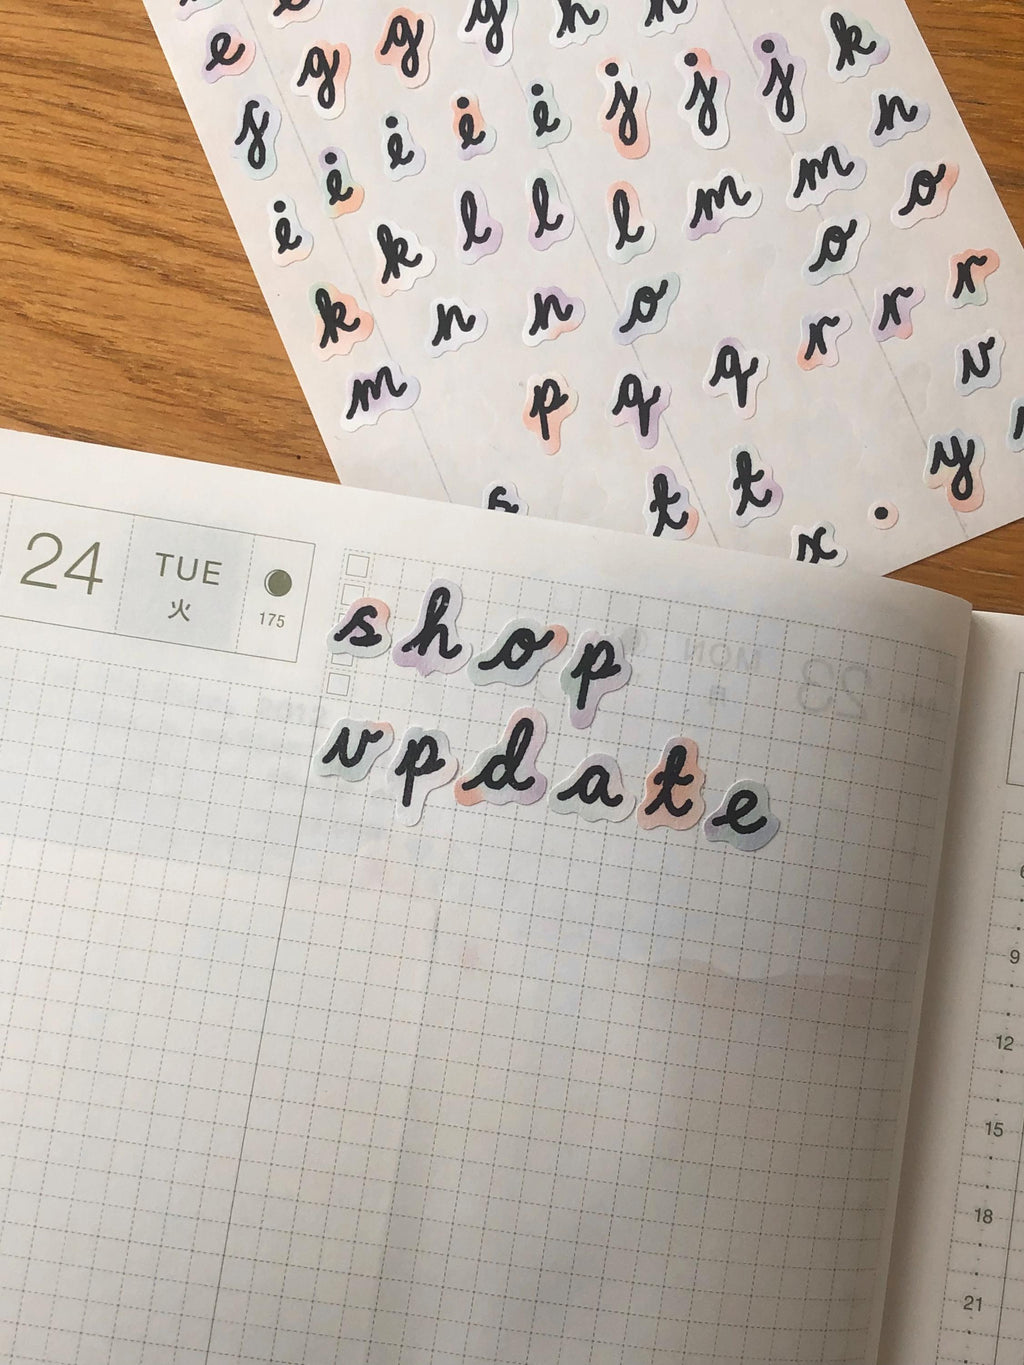 e g g g h h
f i i i i j j j k
i k l l l m m n
k n n o o o
m p q q r r r
s t t v
x . y
24 TUE
火
175
shop
vpdate
9
12
15
18
21